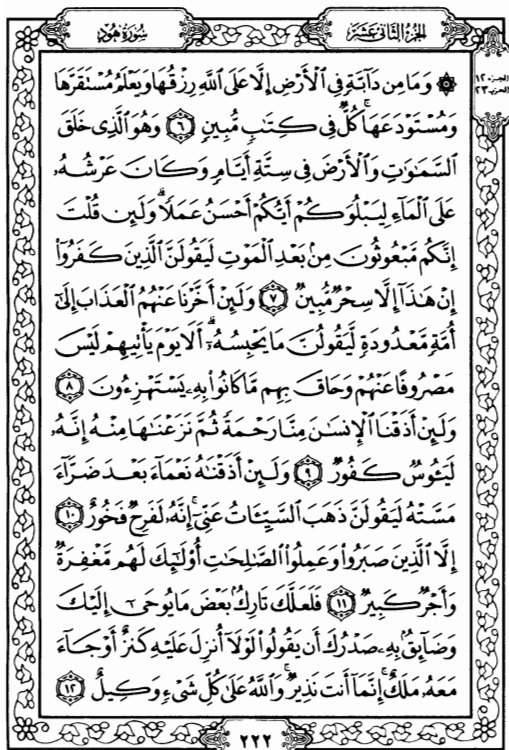 سُورَةُ هُودٍ
الجُزءُ الثَّانِي عَشَرَ
الجزء ١٢
الحزب ٢٣
۞ وَمَا مِن دَآبَّةٍ فِي ٱلْأَرْضِ إِلَّا عَلَى ٱللَّهِ رِزْقُهَا وَيَعْلَمُ مُسْتَقَرَّهَا
وَمُسْتَوْدَعَهَاۚ كُلٌّ فِي كِتَٰبٍ مُّبِينٍ ٦ وَهُوَ ٱلَّذِي خَلَقَ
ٱلسَّمَٰوَٰتِ وَٱلْأَرْضَ فِي سِتَّةِ أَيَّامٍ وَكَانَ عَرْشُهُۥ
عَلَى ٱلْمَآءِ لِيَبْلُوَكُمْ أَيُّكُمْ أَحْسَنُ عَمَلًاۗ وَلَئِن قُلْتَ
إِنَّكُم مَّبْعُوثُونَ مِنۢ بَعْدِ ٱلْمَوْتِ لَيَقُولَنَّ ٱلَّذِينَ كَفَرُوٓا۟
إِنْ هَٰذَآ إِلَّا سِحْرٌ مُّبِينٌ ٧ وَلَئِنْ أَخَّرْنَا عَنْهُمُ ٱلْعَذَابَ إِلَىٰٓ
أُمَّةٍ مَّعْدُودَةٍ لَّيَقُولُنَّ مَا يَحْبِسُهُۥٓۗ أَلَا يَوْمَ يَأْتِيهِمْ لَيْسَ
مَصْرُوفًا عَنْهُمْ وَحَاقَ بِهِم مَّا كَانُوا۟ بِهِۦ يَسْتَهْزِءُونَ ٨
وَلَئِنْ أَذَقْنَا ٱلْإِنسَٰنَ مِنَّا رَحْمَةً ثُمَّ نَزَعْنَٰهَا مِنْهُ إِنَّهُۥ
لَيَـُٔوسٌ كَفُورٌ ٩ وَلَئِنْ أَذَقْنَٰهُ نَعْمَآءَ بَعْدَ ضَرَّآءَ
مَسَّتْهُ لَيَقُولَنَّ ذَهَبَ ٱلسَّيِّـَٔاتُ عَنِّيٓۚ إِنَّهُۥ لَفَرِحٌ فَخُورٌ ١٠
إِلَّا ٱلَّذِينَ صَبَرُوا۟ وَعَمِلُوا۟ ٱلصَّٰلِحَٰتِ أُو۟لَٰٓئِكَ لَهُم مَّغْفِرَةٌ
وَأَجْرٌ كَبِيرٌ ١١ فَلَعَلَّكَ تَارِكٌۢ بَعْضَ مَا يُوحَىٰٓ إِلَيْكَ
وَضَآئِقٌۢ بِهِۦ صَدْرُكَ أَن يَقُولُوا۟ لَوْلَآ أُنزِلَ عَلَيْهِ كَنزٌ أَوْ جَآءَ
مَعَهُۥ مَلَكٌۚ إِنَّمَآ أَنتَ نَذِيرٌۚ وَٱللَّهُ عَلَىٰ كُلِّ شَيْءٍ وَكِيلٌ ١٢
٢٢٢